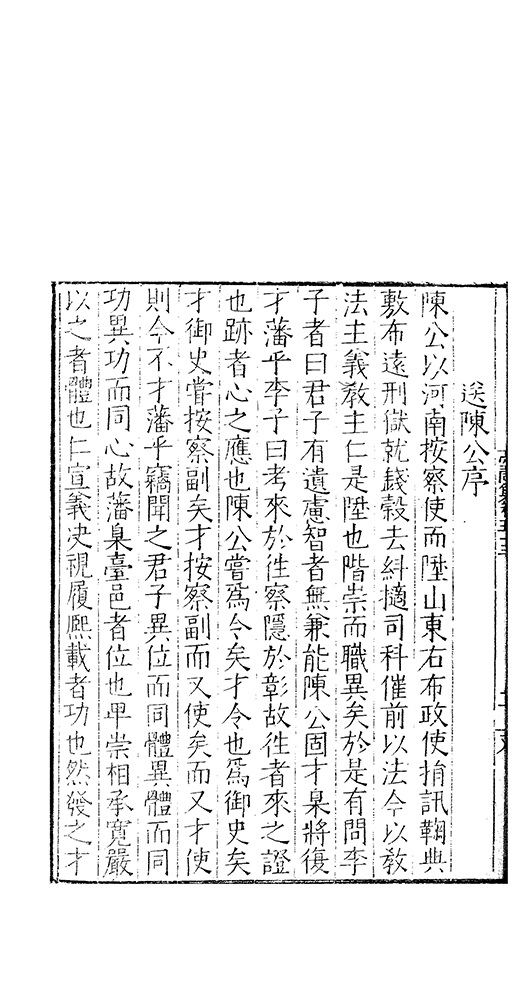 送陳公序
陳公以河南按察使而陞山東右布政使捐訊鞠典
敷布遠刑獄就錢穀去糾擿司科催前以法今以敎
法主義敎主仁是陞也階崇而職異矣於是有問李
子者曰君子有遺慮智者無兼能陳公固才臬將復
才藩乎李子曰考來於徃察隱於彰故徃者來之證
也跡者心之應也陳公嘗爲令矣才令也爲御史矣
才御史嘗按察副矣才按察副而又使矣而又才使
則今不才藩乎竊聞之君子異位而同體異體而同
功異功而同心故藩臬臺邑者位也甲崇相承寛嚴
以之者體也仁宣義决視履熈載者功也然發之才